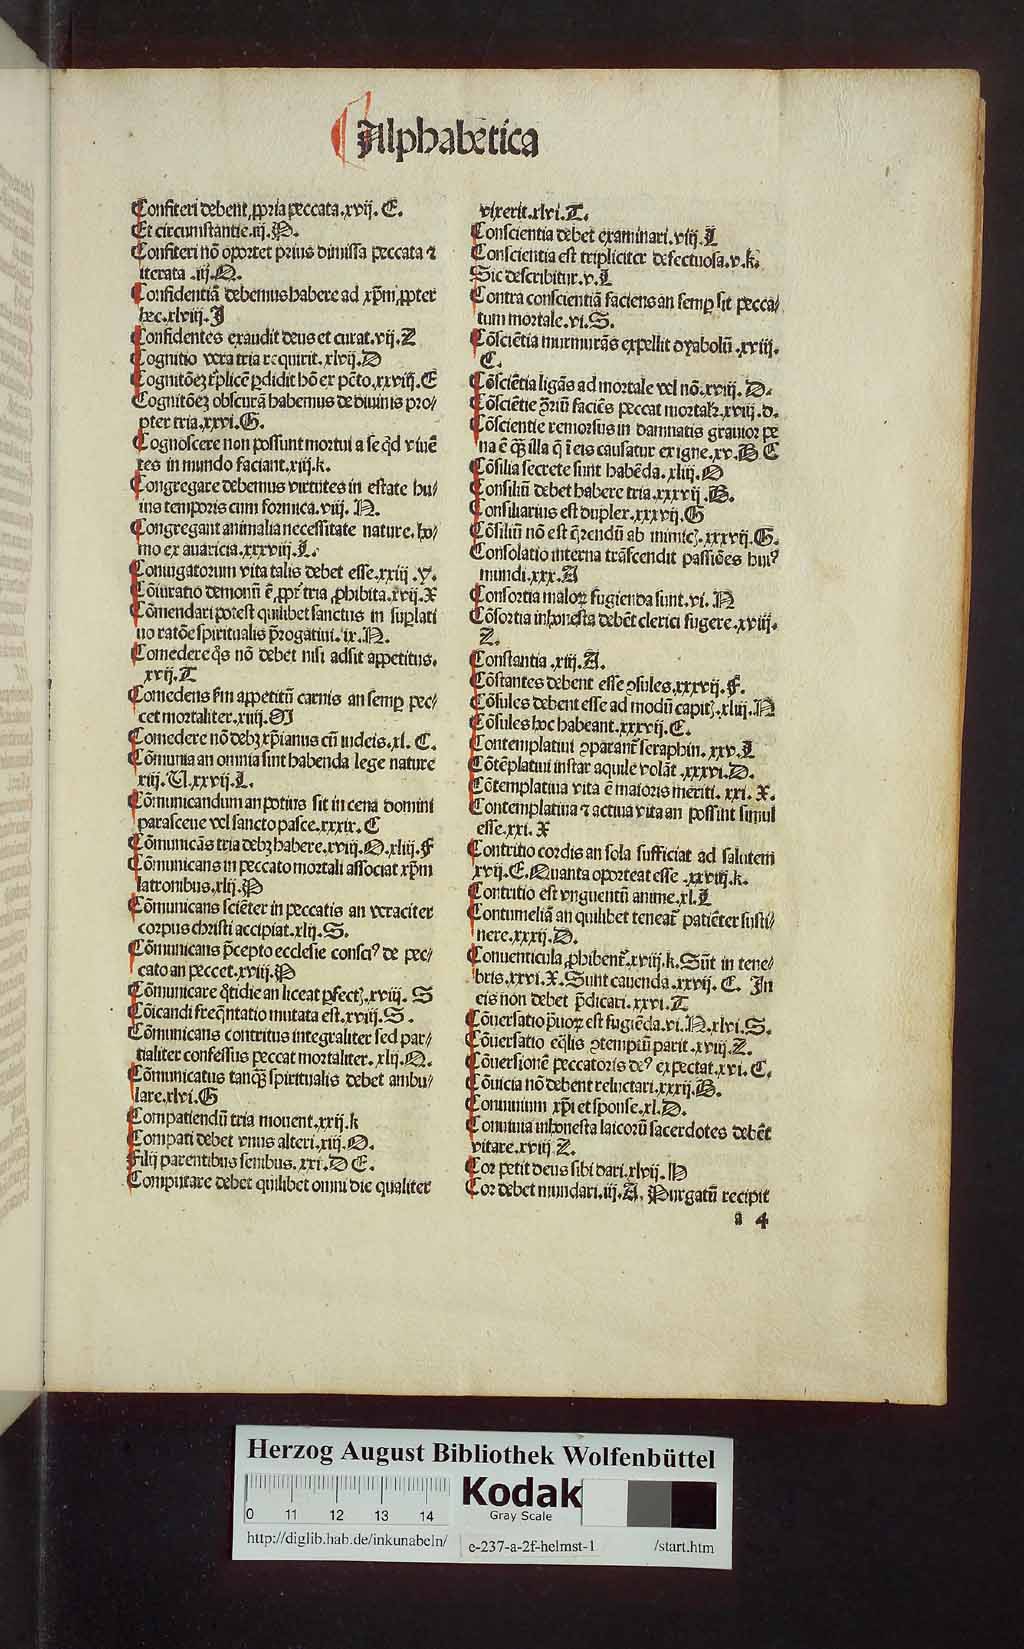 Alphabetica
Confiteri debent ꝓpria peccata.xvij. E.
Et circumstantie.iij.P.
Confiteri nõ oportet prius dimissa peccata ⁊
iterata .iij.Q.
Confidentiã debemus habere ad xp̃m ꝓpter
hec.xlviij.J
Confidentes exaudit deus et curat.vij.Z
Cognitio vera tria requirit.xlvij.D
Cognitõeꝫ tͥplicẽ ꝑdidit hõ ex pctõ.xxviij.E
Cognitõeꝫ obscurã habemus de diuinis pro/
pter tria.xxvi.G.
Cognoscere non possunt mortui a se qͥd viuẽ
tes in mundo faciant.xiij.k.
Congregare debemus virtutes in estate hu/
ius temporis cum formica.viij. N.
Congregant animalia necessitate nature. ho/
mo ex auaricia.xxxviij.L.
Coniugatorum vita talis debet esse.xxiij .V.
Cõiuratio demonũ ẽ ꝓpt̃ tria ꝓhibita.xvij.X
Cõmendari potest quilibet sanctus in suꝑlati
uo ratõe spiritualis p̃rogatiui.ix.N.
Comedere qͥs nõ debet nisi adsit appetitus.
xvij.T
Comedens fm appetitũ carnis an semꝑ pec/
cet mortaliter.xiiij.M
Comedere nõ debꝫ xp̃ianus cũ iudeis.xl. C.
Cõmunia an omnia sint habenda lege nature
xiij.V.xxvij.L.
Cõmunicandum an potius sit in cena domini
parasceue vel sancto pasce.xxxix.C
Cõmunicãs tria debꝫ habere.xviij.O.xliij.F
Cõmunicans in peccato mortali associat xp̃m
latronibus.xlij.P
Cõmunicans sciẽter in peccatis an veraciter
corpus christi accipiat.xlij.S.
Cõmunicans p̃cepto ecclesie consciꝰ de pec/
cato an peccet.xviij.P
Cõmunicare qͦtidie an liceat ꝑfectꝭ.xviij. S
Cõicandi freqͣntatio mutata est.xviij.S.
Cõmunicans contritus integraliter sed par/
tialiter confessus peccat mortaliter. xlij.Q.
Cõmunicatus tanqͣꝫ spiritualis debet ambu/
lare.xlvi.G
Compatiendũ tria mouent.xxij.k
Compati debet vnus alteri.xiij.O.
Filij parentibus senibus. xxi.D E.
Computare debet quilibet omni die qualiter
vixerit.xlvi.T.
Conscientia debet examinari.viij.L
Conscientia est tripliciter defectuosa.v.k.
Sic describitur.v.L
Contra conscientiã faciens an semꝑ sit pecca/
tum mortale.vi.S.
Cõsciẽtia murmurãs expellit dyabolũ .xviij.
C.
Cõsciẽtia ligãs ad mortale vel nõ.xviij.D.
Cõsciẽtie ꝯ̃riũ faciẽs peccat mortalr̃.xviij.d.
Cõscientie remorsus in damnatis grauior pe
na ẽ qͣꝫ illa q̃ ĩ eis causatur ex igne.xv.B C
Cõsilia secrete sunt habẽda.xliij.O
Consiliũ debet habere tria.xxxvij.B.
Consiliarius est duplex.xxxvij.G
Cõsiliũ nõ est q̃rendũ ab inimicꝭ.xxxvij.G.
Consolatio interna trãscendit passiões huiꝰ
mundi.xxx.A
Consortia maloꝝ fugienda sunt.vi.N
Cõsortia inhonesta debẽt clerici fugere.xviij.
Z.
Constantia .xiij.A.
Cõstantes debent esse ꝯsules.xxxvij.F.
Cõsules debent esse ad modũ capitꝭ.xliij.N
Cõsules hoc habeant.xxxvij.E.
Contemplatiui ꝯparant̃ seraphin. xxv.L
Cõtẽplatiui instar aquile volãt .xxxvi.D.
Cõtemplatiua vita ẽ maioris meriti. xxi. X.
Contemplatiua ⁊ actiua vita an possint simul
esse.xxi. X
Contritio cordis an sola sufficiat ad salutem
xvij.E.Quanta oporteat esse .xxviij.k.
Contritio est vnguentũ anime.xl.L
Contumeliã an quilibet teneat̃ patiẽter susti/
nere.xxxij.D.
Conuenticula ꝓhibent̃.xviij.k.Sũt in tene/
bris.xxvi.X.Sunt cauenda.xxvij. C. In
eis non debet p̃dicari.xxvi.T
Cõuersatio p̃uoꝝ est fugiẽda.vi.N.xlvi.S.
Cõuersatio eqͣlis ꝯtemptũ parit.xviij.Z.
Cõuersionẽ peccatoris deꝰ expectat.xvi.C.
Cõuicia nõ debent reluctari.xxxij.B.
Conuiuium xp̃i et sponse.xl.D.
Conuiuia inhonesta laicorũ sacerdotes debẽt
vitare.xviij Z.
Cor petit deus sibi dari.xlvij.H
Cor debet mundari.iij.A. Purgatũ recipit
a 4
Herzog August Bibliothek Wolfenbüttel
0 11 12 13 14
Kodak
Gray Scale
http://diglib.hab.de/inkunabeln/ e-237-a-2f-helmst-1 /start.htm